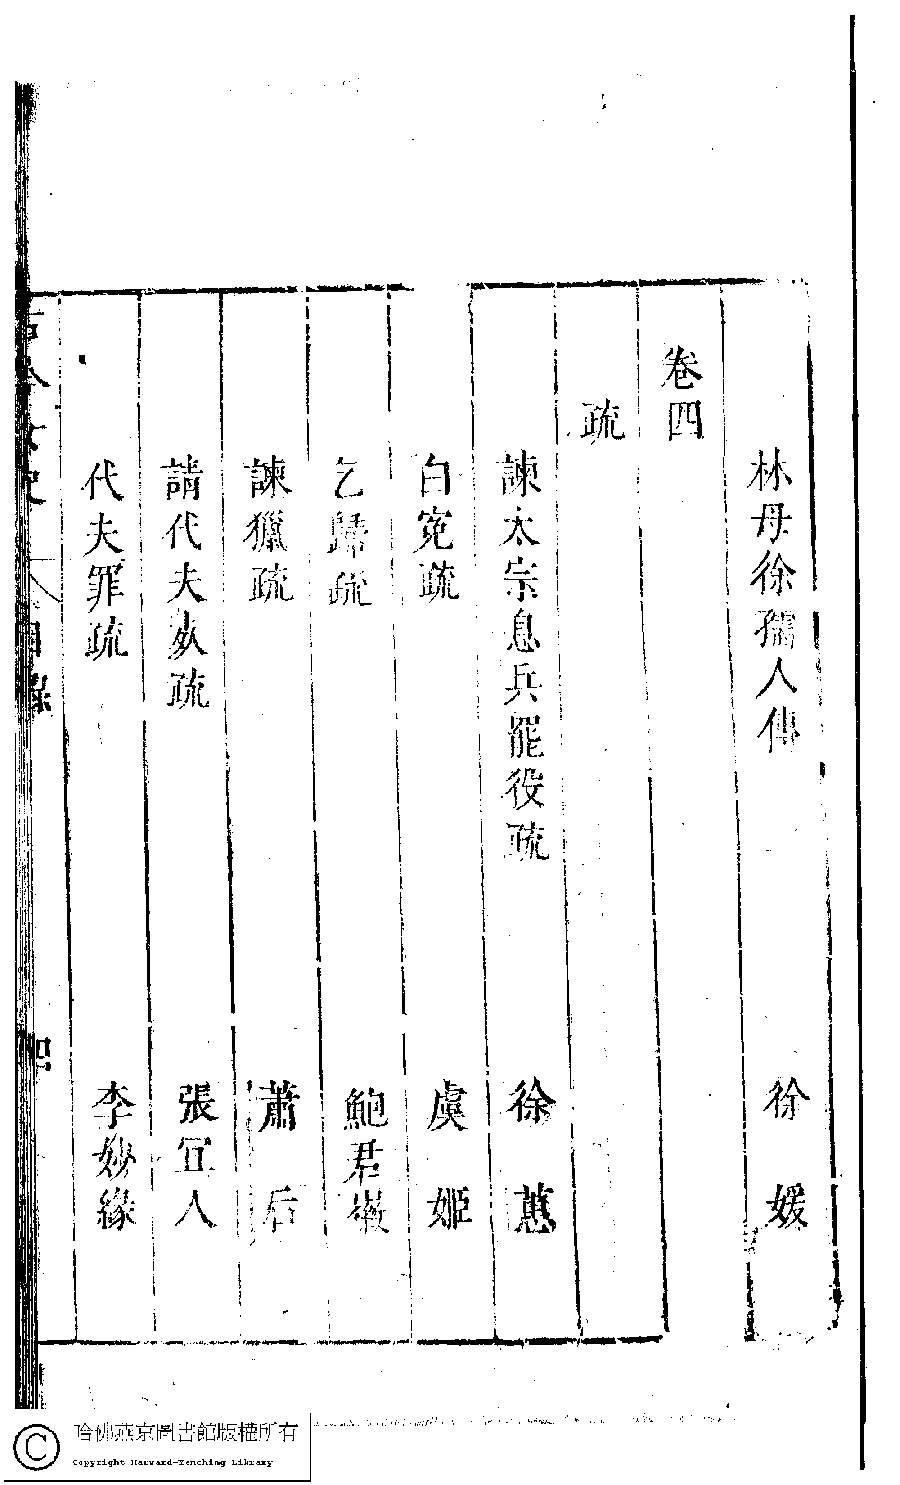 林母徐孺人傳 徐媛
卷四
疏
諫太宗息兵罷役疏 徐蕙
白寃疏 虞姬
乞歸疏 鮑君徽
諫獵疏 蕭后
請代夫死疏 張宜人
代夫罪疏 李妙緣
古今女史 目錄
哈佛燕京圖書館版權所有
Copyright Harvard-Yenching Library